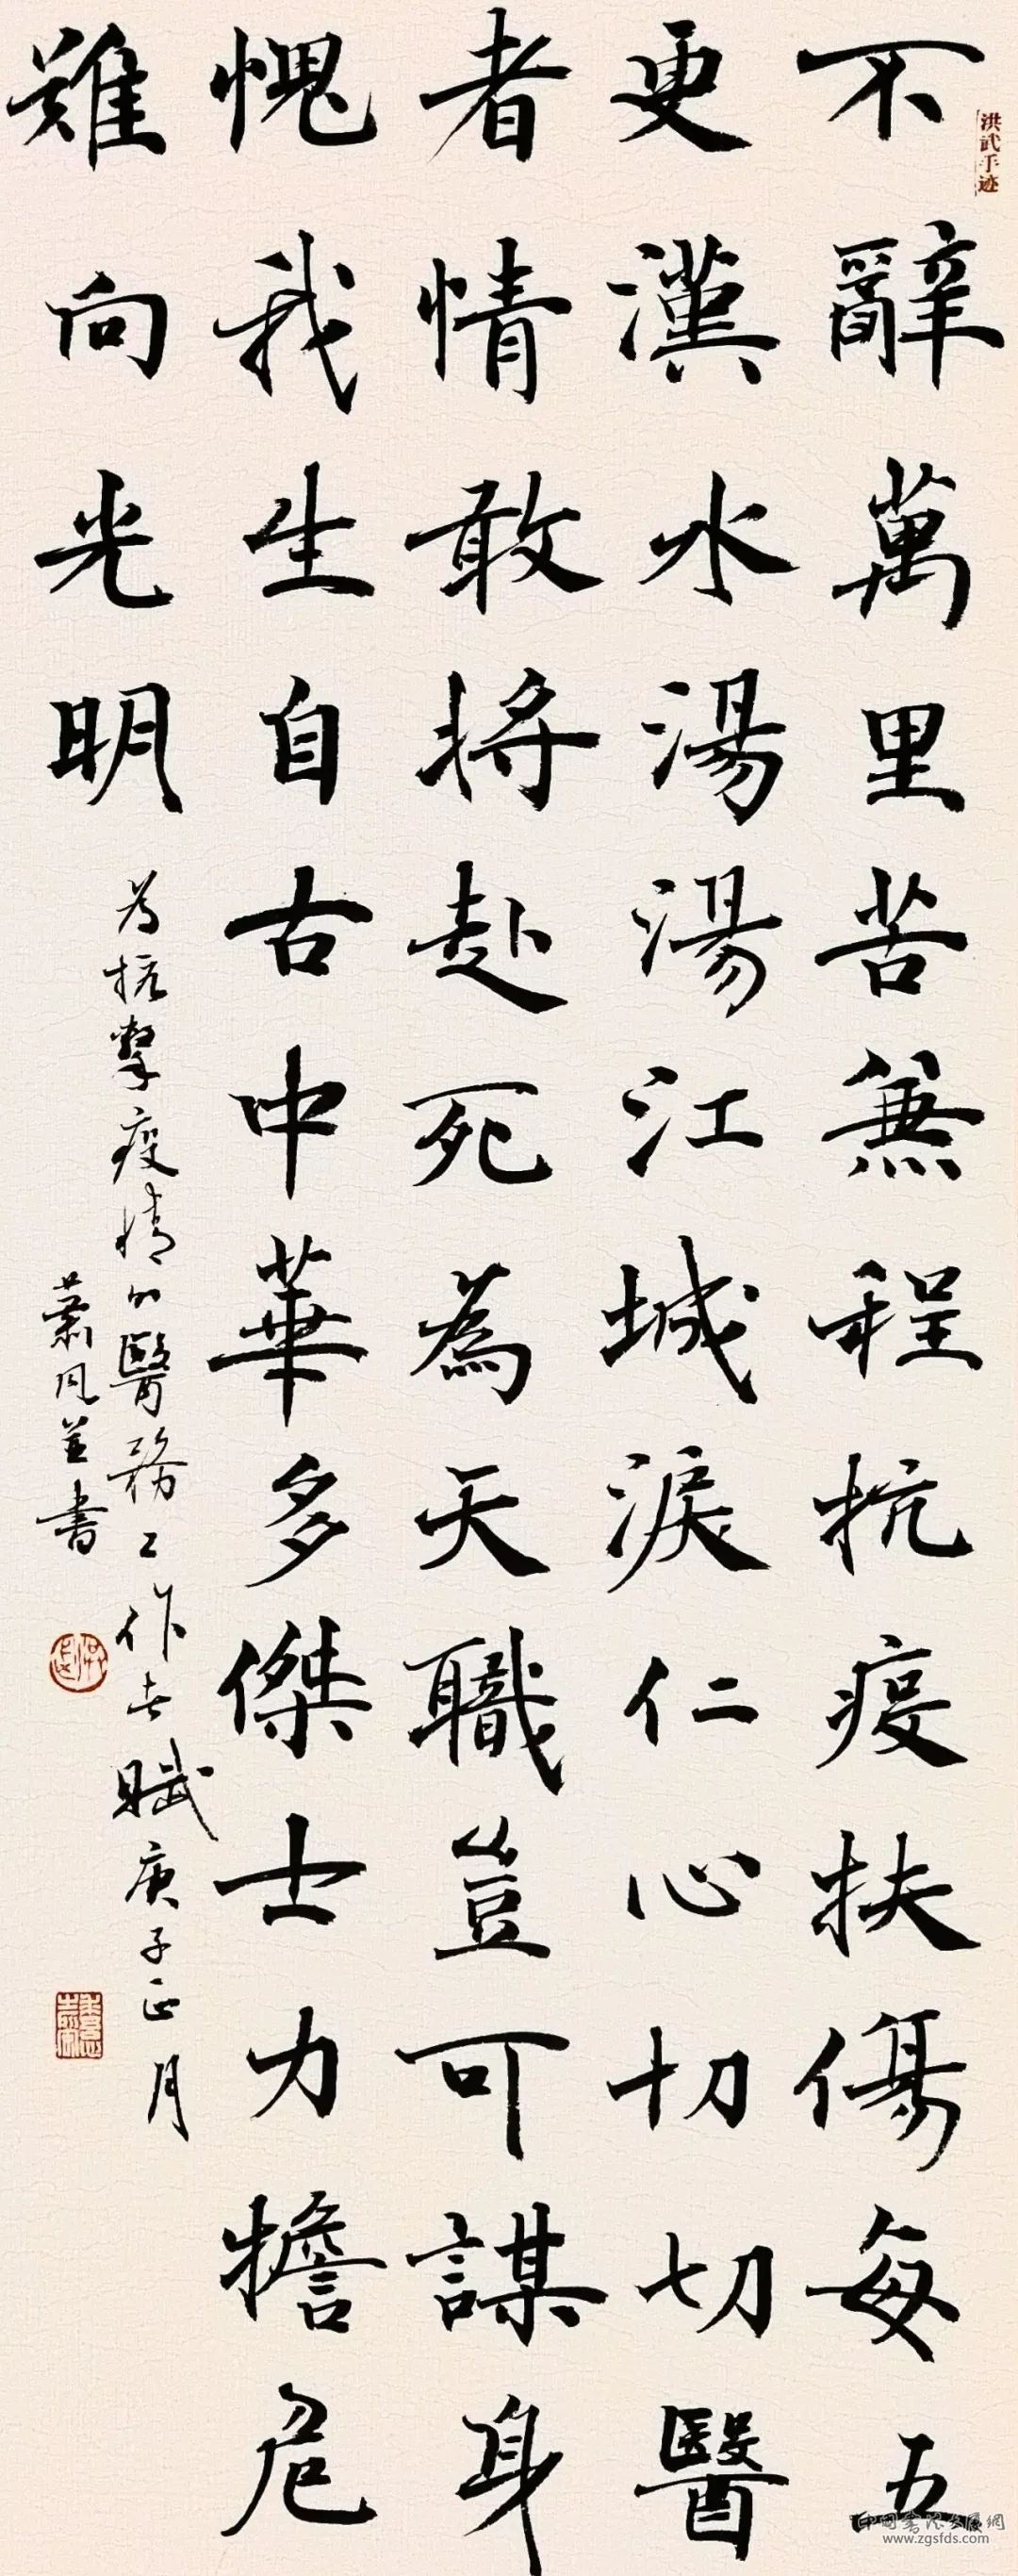 洪武手迹
不辭萬里苦兼程抗疫扶傷每五
更漢水湯湯江城淚仁心切切醫
者情敢將赴死為天職豈可謀身
愧我生自古中華多傑士力擔危
難向光明
為抗擊疫情的醫務工作者賦庚子正月
蕭風並書
www.zgsfds.com